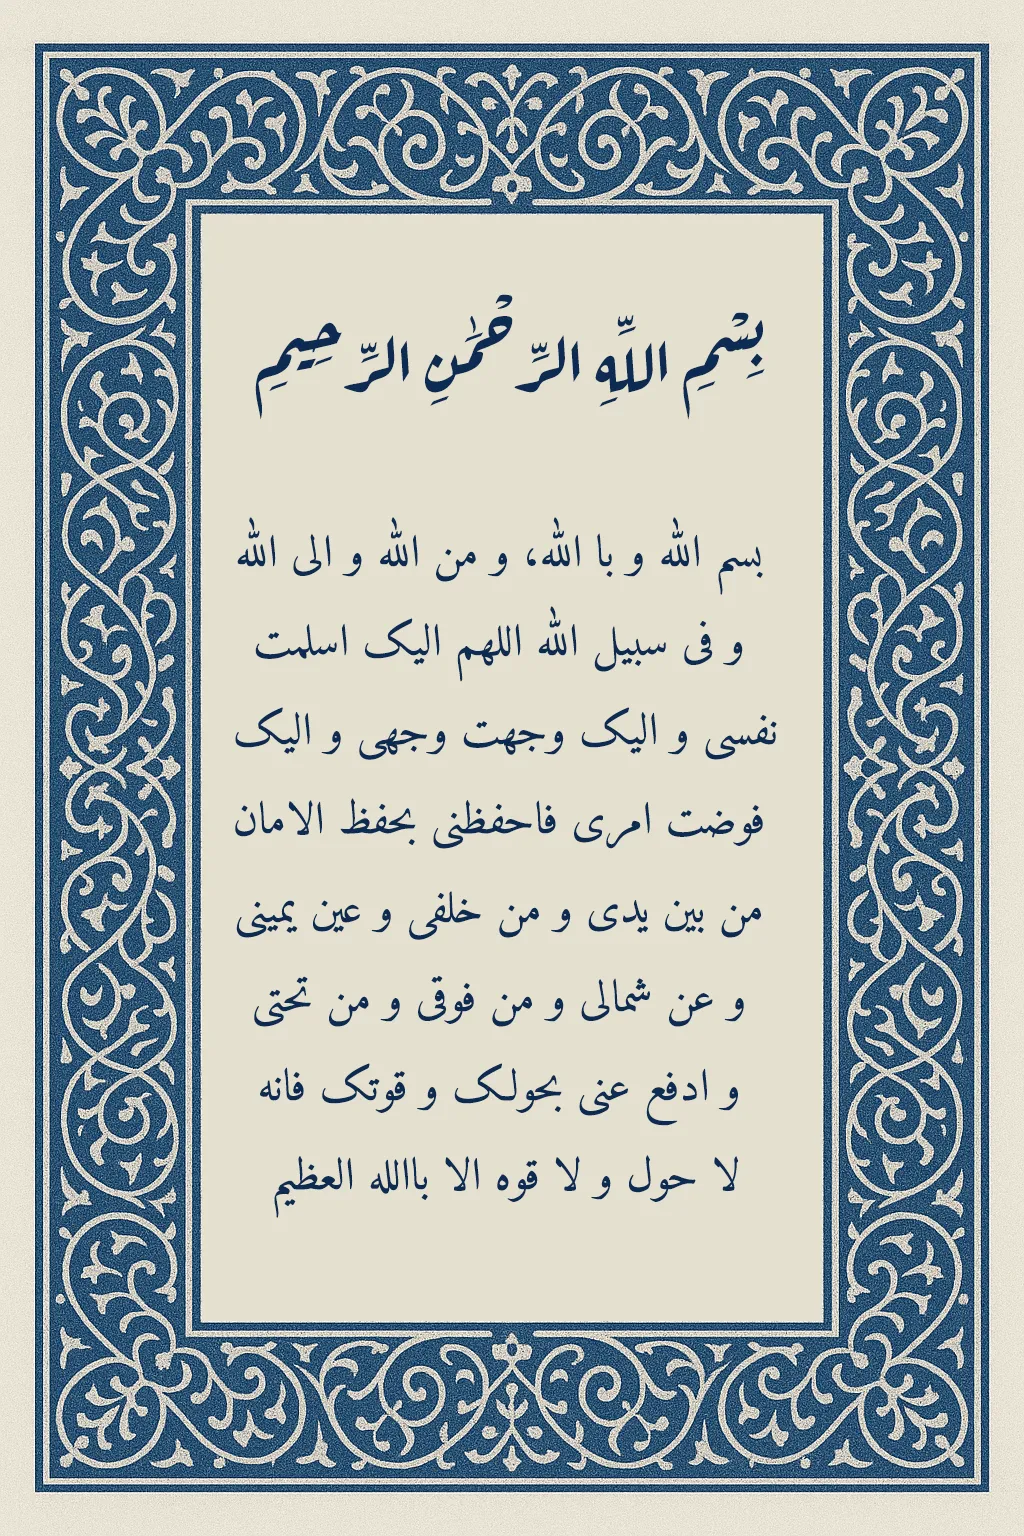 بِسْمِ اللَّهِ الرَّحْمَٰنِ الرَّحِيمِ
بسم الله و با الله، و من الله و الی الله
و فی سبیل الله اللهم الیک اسلمت
نفسی و الیک وجهت وجهی و الیک
فوضت امری فاحفظنی بحفظ الامان
من بین یدی و من خلفی و عین یمینی
و عن شمالی و من فوقی و من تحتی
و ادفع عنی بحولک و قوتک فانه
لا حول و لا قوه الا باالله العظیم